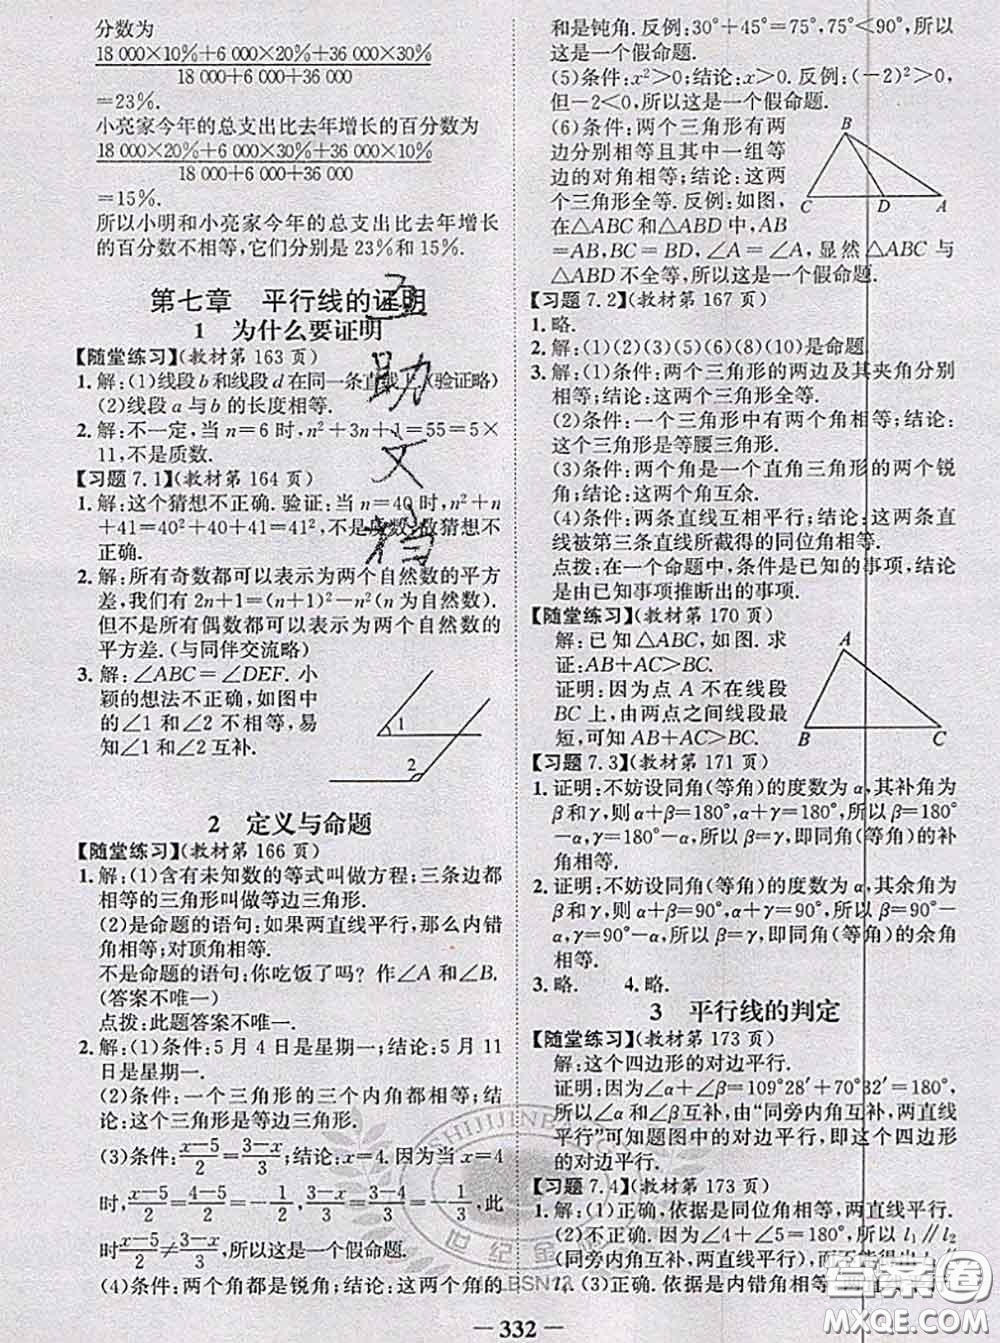 分数为
18 000×10%+6 000×20%+36 000×30%
18 000+6 000+36 000
=23%.
小亮家今年的总支出比去年增长的百分数为
18 000×20%+6 000×30%+36 000×10%
18 000+6 000+36 000
=15%.
所以小明和小亮家今年的总支出比去年增长
的百分数不相等,它们分别是 23%和 15%.
第七章 平行线的证明
1 为什么要证明
【随堂练习】(教材第 163 页)
1.解:(1)线段 b 和线段 d 在同一条直线上.(验证略)
(2)线段 a 与 b 的长度相等.
2.解:不一定,当 n=6 时,n²+3n+1=55=5×
11,不是质数.
【习题 7.1】(教材第 164 页)
1.解:这个猜想不正确.验证:当 n=40 时,n²+n
+41=40²+40+41=41²,不是质数,故猜想不
正确.
2.解:所有奇数都可以表示为两个自然数的平方
差,我们有 2n+1=(n+1)²-n²(n 为自然数).
但不是所有偶数都可以表示为两个自然数的
平方差.(与同伴交流略)
3.解:∠ABC=∠DEF.小
颖的想法不正确,如图中
的∠1 和∠2 不相等,易
知∠1 和∠2 互补.
1
2
2 定义与命题
【随堂练习】(教材第 166 页)
1.解:(1)含有未知数的等式叫做方程;三条边都
相等的三角形叫做等边三角形.
(2)是命题的语句:如果两直线平行,那么内错
角相等;对顶角相等.
不是命题的语句:你吃饭了吗? 作∠A 和∠B.
(答案不唯一)
点拨:此题答案不唯一.
2.解:(1)条件:5 月 4 日是星期一;结论:5 月 11
日是星期一.
(2)条件:一个三角形的三个内角都相等;结
论:这个三角形是等边三角形.
(3)条件:x-5/2=3-x/3;结论:x=4.因为当 x=4
时,x-5/2=4-5/2=-1/2,3-x/3=3-4/3=-1/3,此
时x-5/2≠3-x/3,所以这是一个假命题.
(4)条件:两个角都是锐角;结论:这两个角的
和是钝角.反例:30°+45°=75°,75°<90°,所以
这是一个假命题.
(5)条件:x²>0;结论:x>0.反例:(-2)²>0,
但-2<0,所以这是一个假命题.
(6)条件:两个三角形有两
边分别相等且其中一组等
边的对角相等;结论:这两
个三角形全等.反例:如图,
在△ABC 和△ABD 中,AB
=AB,BC=BD,∠A=∠A,显然△ABC 与
△ABD 不全等,所以这是一个假命题.
B
C D A
【习题 7.2】(教材第 167 页)
1.略.
2.解:(1)(2)(3)(5)(6)(8)(10)是命题.
3.解:(1)条件:两个三角形的两边及其夹角分别
相等;结论:这两个三角形全等.
(2)条件:一个三角形中有两个角相等;结论:
这个三角形是等腰三角形.
(3)条件:两个角是一个直角三角形的两个锐
角;结论:这两个角互余.
(4)条件:两条直线互相平行;结论:这两条直
线被第三条直线所截得的同位角相等.
点拨:在一个命题中,条件是已知的事项,结论
是由已知事项推断出的事项.
【随堂练习】(教材第 170 页)
解:已知△ABC,如图.求
证:AB+AC>BC.
证明:因为点 A 不在线段
BC 上,由两点之间线段最
短,可知 AB+AC>BC.
A
B C
【习题 7.3】(教材第 171 页)
1.证明:不妨设同角(等角)的度数为 α,其补角为
β和γ,则 α+β=180°,α+γ=180°,所以 β=180°
-α,γ=180°-α,所以 β=γ,即同角(等角)的补
角相等.
2.证明:不妨设同角(等角)的度数为 α,其余角为
β和γ,则 α+β=90°,α+γ=90°,所以 β=90°-
α,γ=90°-α,所以 β=γ,即同角(等角)的余角
相等.
3.略. 4.略.
3 平行线的判定
【随堂练习】(教材第 173 页)
解:这个四边形的对边平行.
证明:因为∠α+∠β=109°28′+70°32′=180°,
所以∠α 和∠β 互补,由“同旁内角互补,两直线
平行”可知题图中的对边平行,即这个四边形
的对边平行.
【习题 7.4】(教材第 173 页)
1.解:(1)正确,依据是同位角相等,两直线平行.
(2)不正确.因为∠4+∠5=180°,所以 l₁∥l₂
(同旁内角互补,两直线平行),而不能得出 l₃∥
l₄.(3)正确.依据是内错角相等,两直线平行.
互
助
文
档
SHIJIJINBANG
世纪金
LBSN12
答案圈
MXQE.COM
332